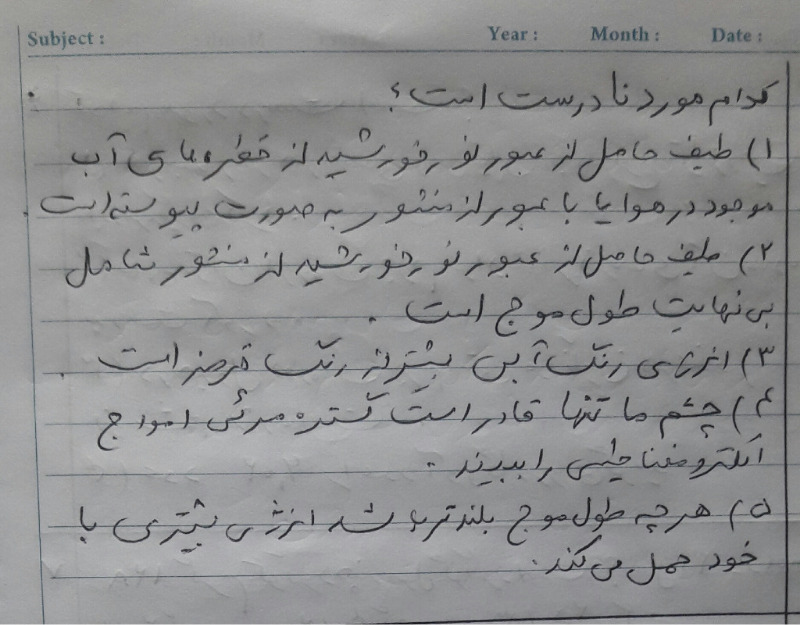 Subject : Year : Month : Date :
کدام مورد نادرست است؟
۱) طیف حاصل از عبور نور خورشید از قطره های آب
موجود در هوا یا با عبور از منشور به صورت پیوسته است
۲) طیف حاصل از عبور نور خورشید از منشور شامل
بی نهایت طول موج است .
۳) انرژی رنگ آبی بیشتر از رنگ قرمز است .
۴) چشم ما تنها قادر است گستره مرئی امواج
الکترومغناطیسی را ببیند .
۵) هرچه طول موج بلندتر باشد انرژی بیشتری با
خود حمل می کند .